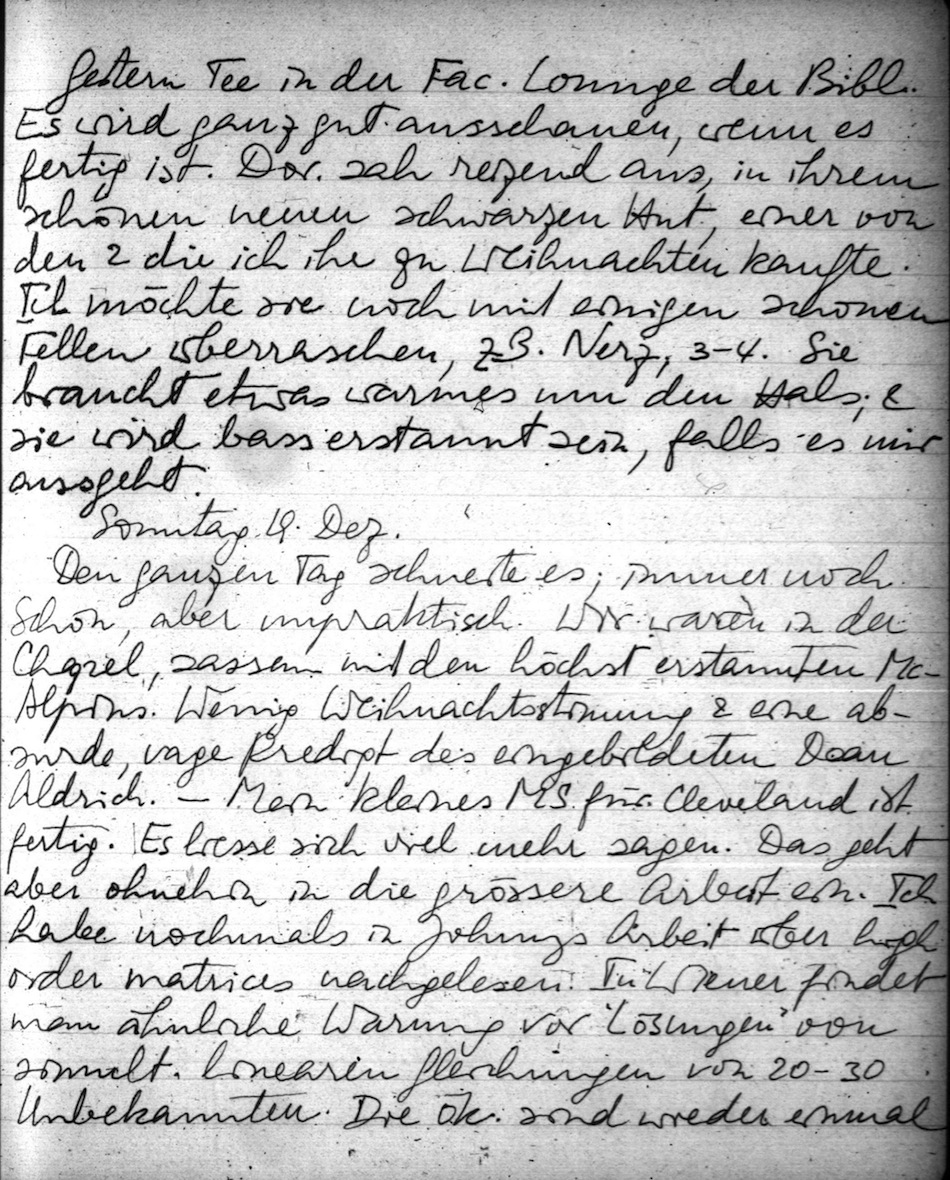 Gestern Tee in der Fac. Lounge der Bibl.
Es wird ganz gut ausschauen, wenn es
fertig ist. Dor. sah reizend aus, in ihrem
schönen neuen schwarzen Hut, einer von
den 2 die ich ihr zu Weihnachten kaufte.
Ich möchte sie noch mit einigen schönen
Fellen überraschen, z.B. Nerz, 3-4. Sie
braucht etwas warmes um den Hals; &
sie wird bass erstaunt sein, falls es mir
ausgeht.
Sonntag 19. Dez.
Den ganzen Tag schneite es; immer noch.
Schön, aber unpraktisch. Wir waren in der
Chapel, sassen mit den höchst erstaunten Mc-
Alpins. Wenig Weihnachtsstimmung & eine ab-
surde, vage Predigt des eingebildeten Dean
Aldrich. — Mein kleines MS für Cleveland ist
fertig. Es liesse sich viel mehr sagen. Das geht
aber ohnehin in die grössere Arbeit ein. Ich
habe nochmals in Johnnys Arbeit über high
order matrices nachgelesen. In Wiener findet
man ähnliche Warnung vor "Lösungen" von
simult. linearen Gleichungen von 20-30
Unbekannten. Die Ök. sind wieder einmal